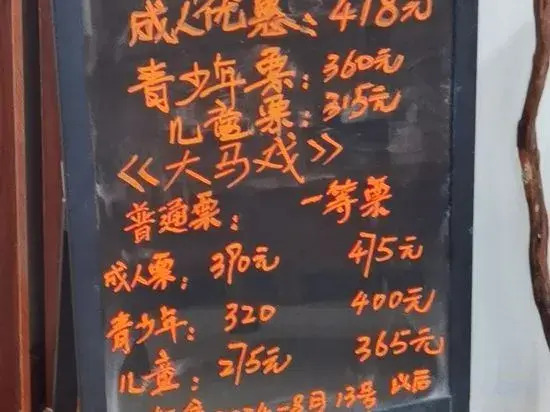 成人优惠：418元
青少年票：360元
儿童票：315元
《大马戏》
普通票： 一等票
成人票：390元 475元
青少年：320 400元
儿童：275元 365元
2024-8月13号 以后